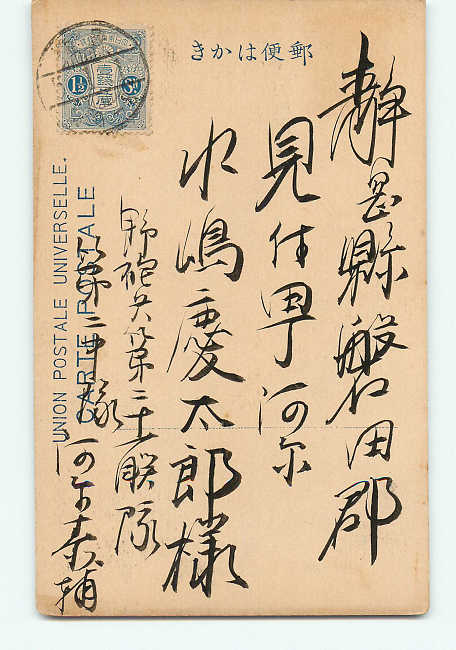 きかは便郵
静岡縣磐田郡
見付町河原
水嶋慶太郎様
野砲兵第二十一聯隊
第二中隊
UNION POSTALE UNIVERSELLE.
CARTE POSTALE
1½ Sn